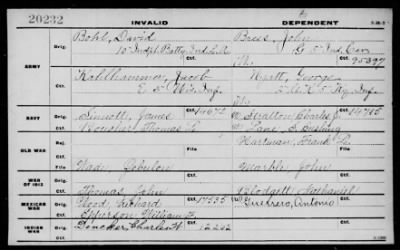 20232
INVALID
DEPENDENT
ARMY
Orig.
Bohl, David
10 Indpt Batty Ind L.A
Brees, John
G 5" Ind. Cav
Ctf.
95397
Orig.
Kohlhammer, Jacob
E 5" Wis. Inf.
Wyatt, George
Ctf.
NAVY
Orig.
Sinnott, James
14672
Stratton, Charles J.
14785
Ctf.
Boucher, Thomas L
Page, S. Cushing
OLD WAR
Orig.
File
Hartman, Frank L.
File
Ctf.
Wade, Zebulon
Marble, John
WAR OF 1812
Orig.
Thomas, John
Blodgett, Nathaniel
Ctf.
MEXICAN WAR
Orig.
Wood, Richard
17535
Guerrero, Antonio
Ctf.
Epperson, William H.
INDIAN WAR
Orig.
Doncker, Charles H.
12202
Ctf.